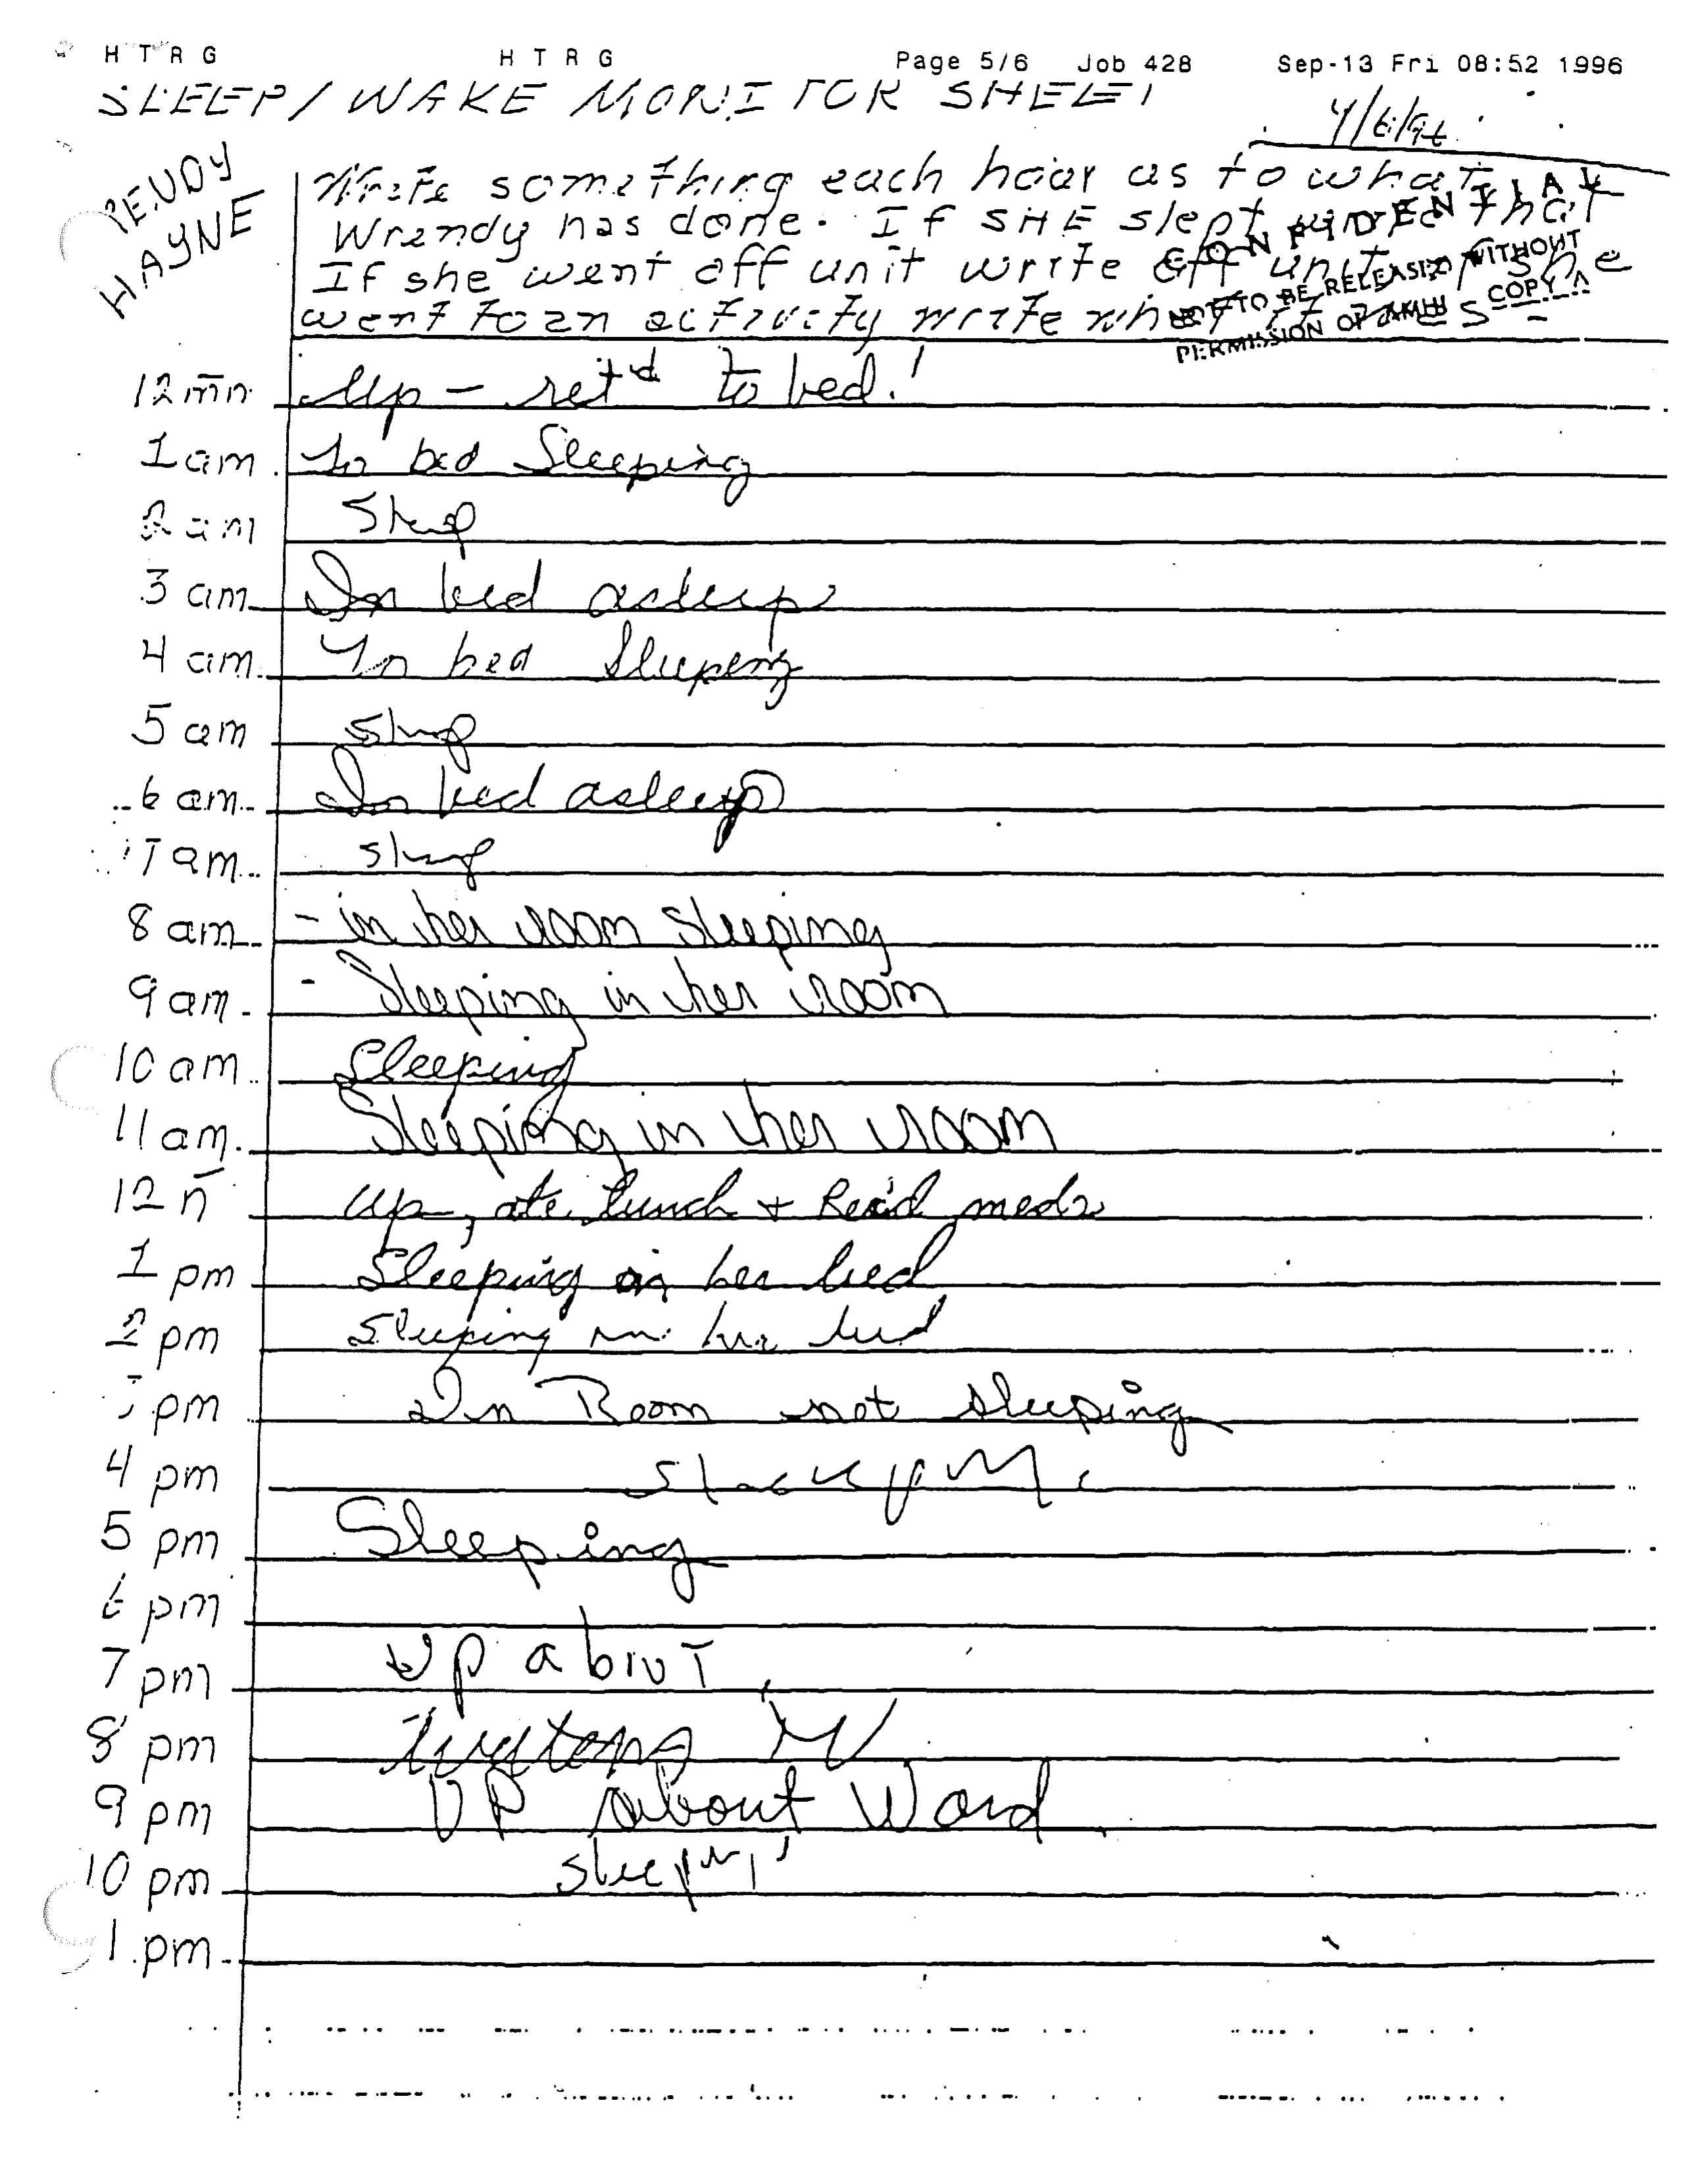 H T R G H T R G Page 5/6 Job 428 Sep-13 Fri 08:52 1996
SLEEP/WAKE MONITOR SHEET
4/6/96
WENDY
HAYNE
Write something each hour as to what
Wrendy has done. If SHE slept write that
If she went off unit write off unit If she
went to an activity write what it was
CONFIDENTIAL
NOT TO BE RELEASED WITHOUT
PERMISSION OF AMHI COPY
12 mn Up - ret'd to bed!
1 am In bed Sleeping
2 am Sleep
3 am In bed asleep
4 am In bed Sleeping
5 am sleep
6 am In bed asleep
7 am sleep
8 am - in her room sleeping
9 am - Sleeping in her room
10 am Sleeping
11 am Sleeping in her room
12 n up, ate lunch + Rec'd meds
1 pm Sleeping in her bed
2 pm Sleeping in her bed
pm In Room not sleeping
4 pm
5 pm Sleeping
6 pm
7 pm UP about
8 pm
9 pm UP about Ward
10 pm sleeping
1 pm